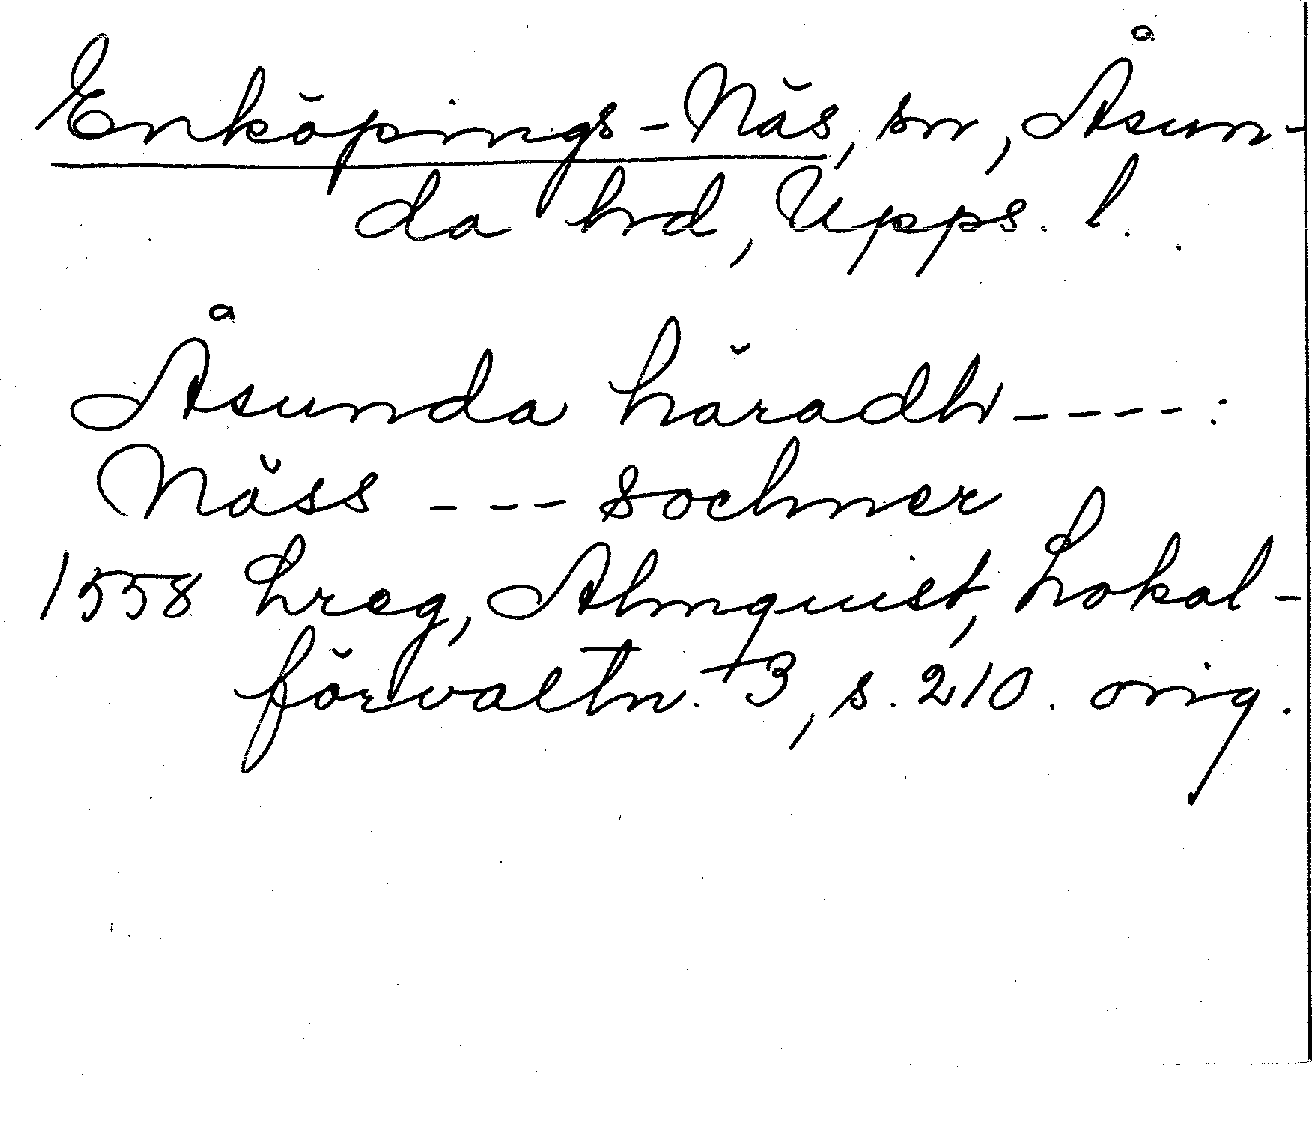 Enköpings-Näs, sn, Åsun-
da hrd, Upps. l.
Åsunda häradh----:
Näss --- sochner
1558 Lreg, Almquist, Lokal-
förvaltn. 3, s. 210. orig.